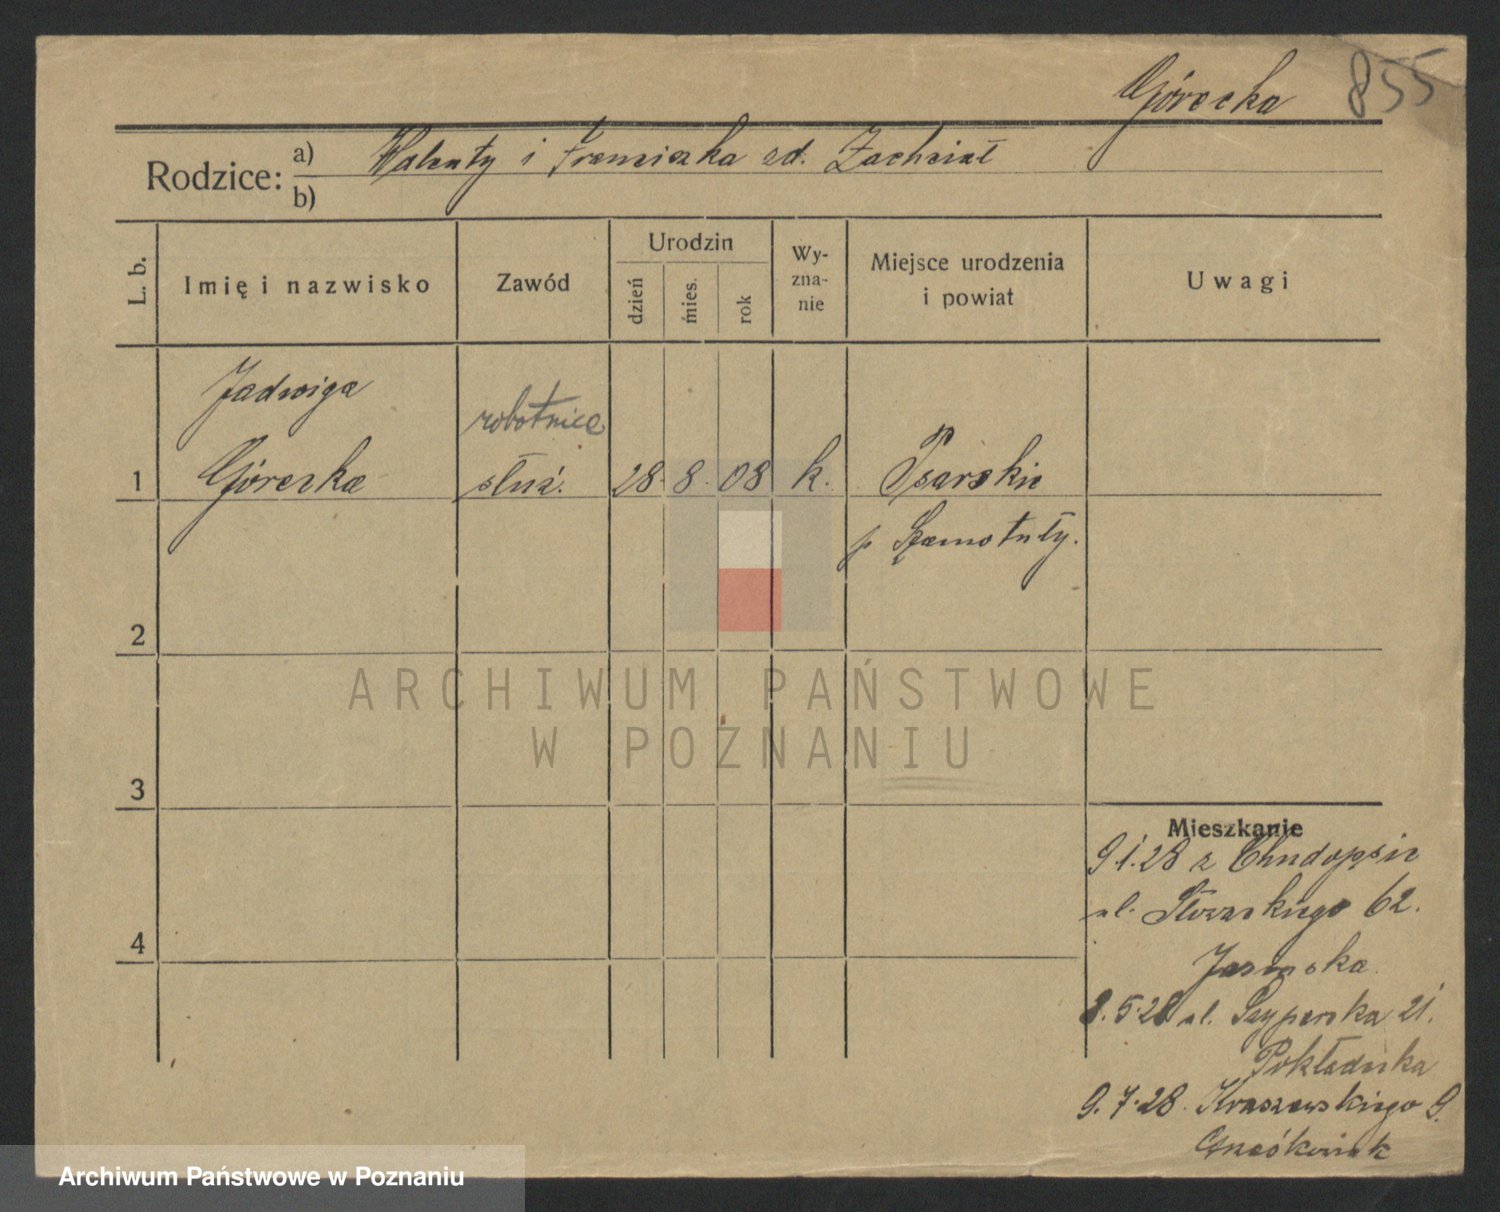 Górecka 855
Rodzice: a) Walenty i Franciszka zd. Zachciał
b)
L. b.
Imię i nazwisko
Zawód
Urodzin
dzień
mies.
rok
Wy-
zna-
nie
Miejsce urodzenia
i powiat
Uwagi
Jadwiga
robotnica
1 Górecka służ. 28. 8. 08 k. Psarskie
p Szamotuły.
2
ARCHIWUM PAŃSTWOWE
W POZNANIU
3
Mieszkanie
9.1.28 z Chudopsic
ul. 62.
4
Jasińska
8.5.28 ul. Szyperska 21.
9.7.28. Kraszewskiego 9.
Archiwum Państwowe w Poznaniu